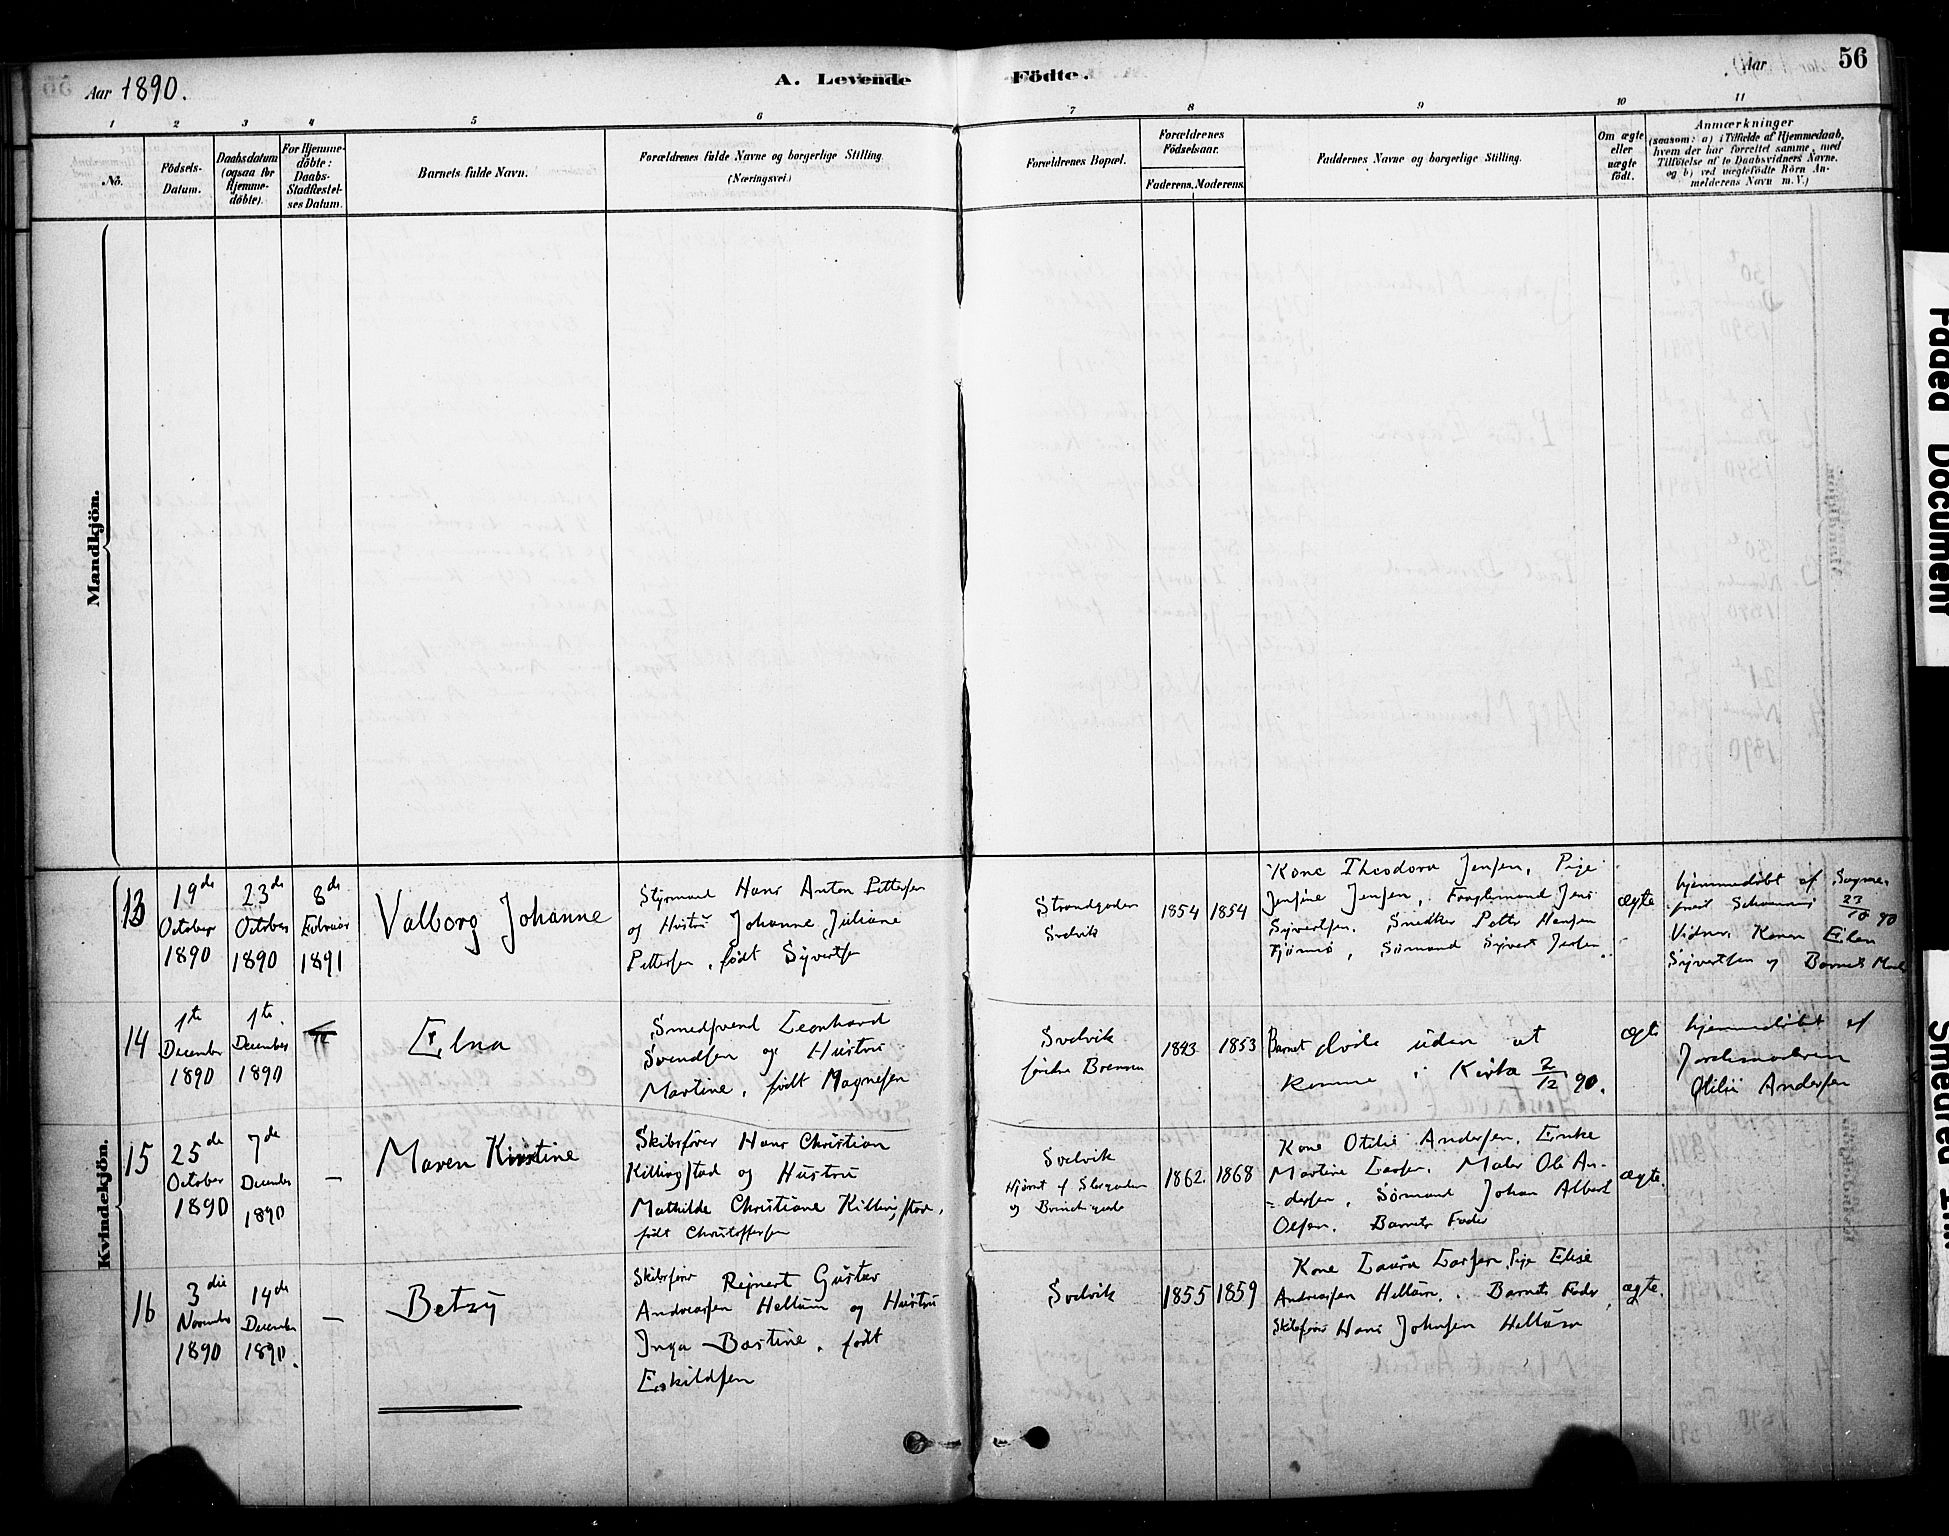 Aar 1890.
A. Levende
Födte.
Aar
56
1
2
3
4
5
6
7
8
9
10
11
No.
Födsels-
Datum.
Daabsdatum
(ogsaa for
Hjemme-
döbte).
For Hjemme-
döbte:
Daabs-
Stadfæstel-
ses Datum.
Barnets fulde Navn.
Forældrenes fulde Navne og borgerlige Stilling
(Næringsvei.)
Forældrenes Bopæl.
Forældrenes
Födselsaar.
Faderens. Moderens.
Faddernes Navne og borgerlige Stilling.
Om ægte
eller
uægte
födt.
Anmærkninger
(saasom: a) i Tilfælde af Hjemmedaab,
hvem der har forrettet samme, med
Tilföielse af to Daabsvidners Navne,
og b) ved uægtefödte Börn An-
melderens Navn m. V.)
Mandkjön.
Kvindekjön.
13
19de
October
1890
23de
October
1890
8de
Februar
1891
Valborg Johanne
Styrmand Hans Anton Pettersen
og Hustru Johanne Juliane
Pettersen, født Syvertsen
Strandgaden
Svelvik
1854
1854
Kone Theodora Jensen, Pige
Jensine Jensen, Fragtemand Jens
Syvertsen, Snedker Petter Hansen
Tjømø, Sømand Syvert Jensen.
ægte
hjemmedøbt af Sogne-
prest 23/10 90
Vidner Konen Elen
Syvertsen og Barnets Moder
14
1ste
December
1890
1ste
December
1890
Elna
Smedsvend Leonhard
Svendsen og Hustru
Martine, født Magnesen
Svelvik
søndre Brennen
1843
1853
Barnet døde uden at
komme i Kirke 2/12 90.
ægte
hjemmedøbt af
Jordemoderen
Otilie Andersen
15
25de
October
1890
7de
December
1890
—
Maren Kirstine
Skibsfører Hans Christian
Killingstad og Hustru
Mathilde Christiane Killingstad,
født Christoffersen
Svelvik
Hjørnet af Storgaden
og
1862.
1868
Kone Otilie Andersen, Enke
Martine Larsen, Maler Ole An-
=dersen, Sømand Johan Albert
Olsen, Barnets Fader
ægte.
16
3die
November
1890
14de
December
1890.
—
Betzy
Skibsfører Reinert Gustav
Andreassen Hellum og Hustru
Inga Bastine, født
Eskildsen
Svelvik
1855
1859
Kone Laura Larsen, Pige Elise
Andreassen Hellum, Barnets Fader,
Skibsfører Hans Johnsen Hellum
ægte.
Faded Document
Smeared Ink